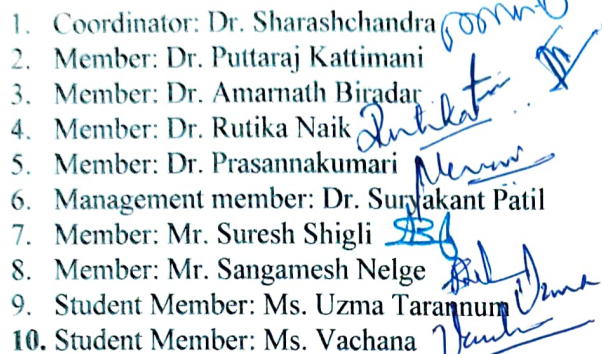 1. Coordinator: Dr. Sharashchandra
2. Member: Dr. Puttaraj Kattimani
3. Member: Dr. Amarnath Biradar
4. Member: Dr. Rutika Naik Rutika
5. Member: Dr. Prasannakumari
6. Management member: Dr. Suryakant Patil
7. Member: Mr. Suresh Shigli
8. Member: Mr. Sangamesh Nelge
9. Student Member: Ms. Uzma Tarannum Uzma
10. Student Member: Ms. Vachana